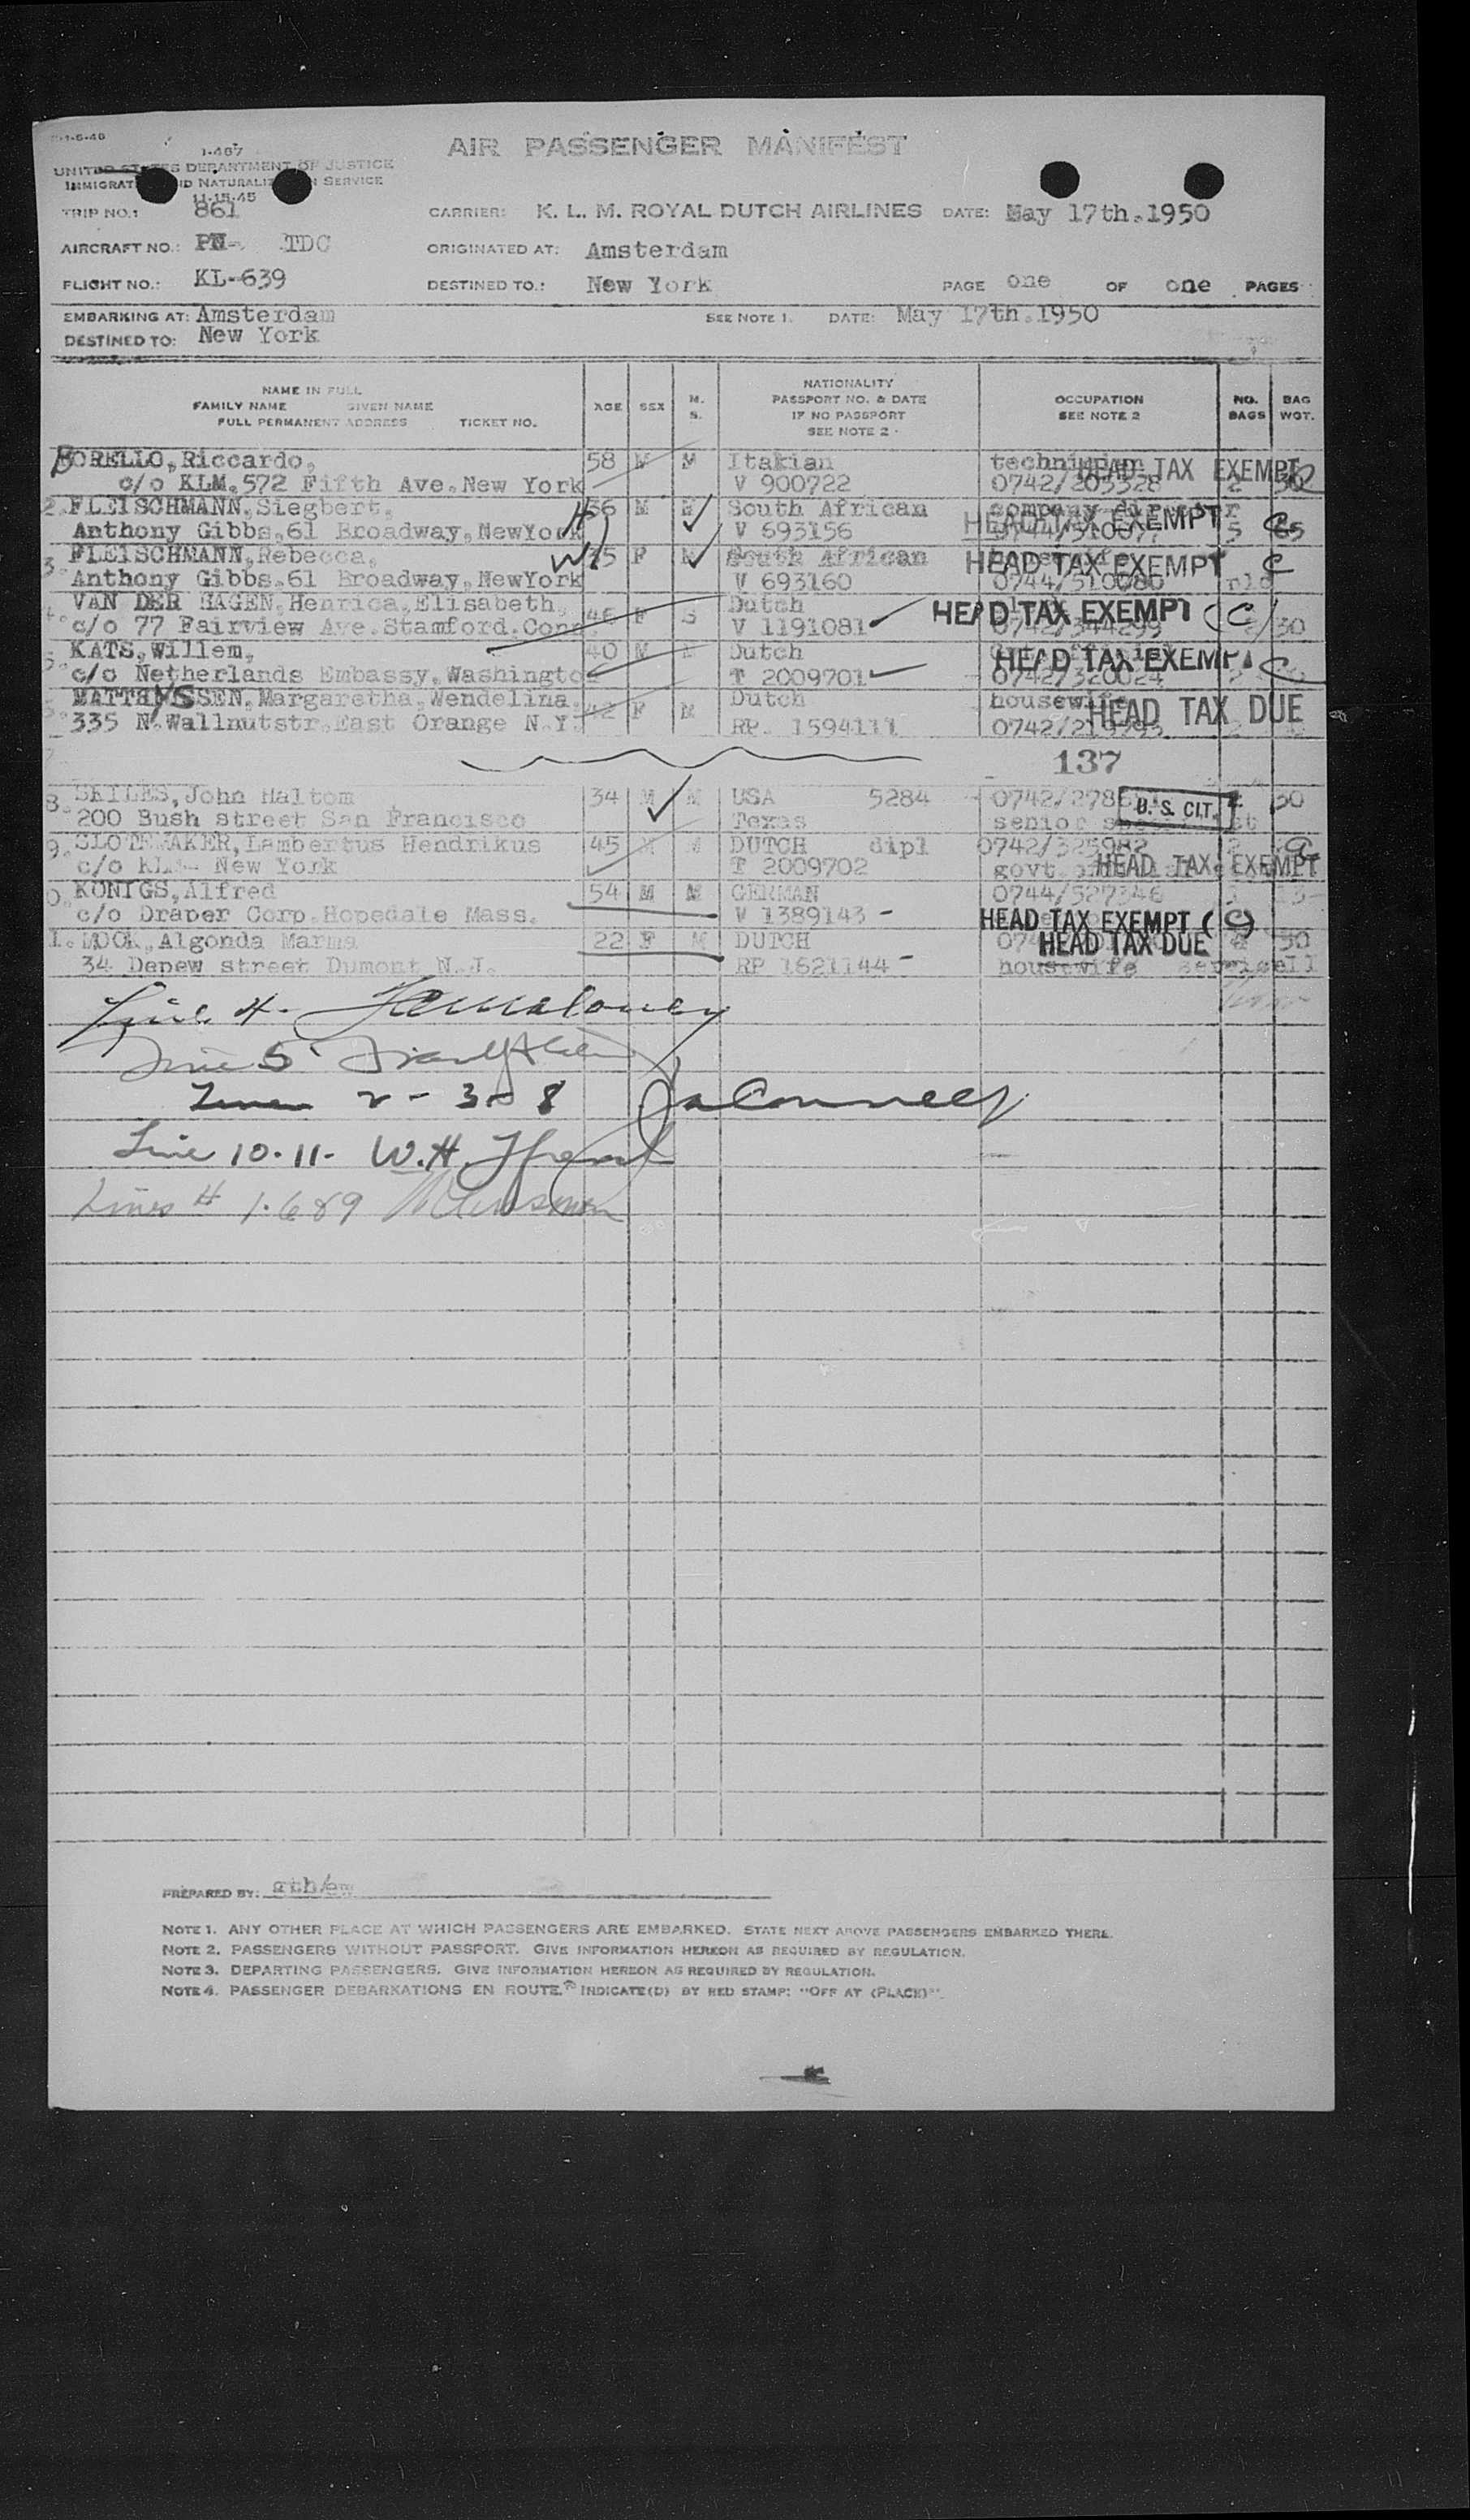 AIR PASSENGER MANIFEST
1-467
UNITED STATES DEPARTMENT OF JUSTICE
IMMIGRATION AND NATURALIZATION SERVICE
11-15-45
TRIP NO.: 861 CARRIER: K. L. M. ROYAL DUTCH AIRLINES DATE: May 17th.1950
AIRCRAFT NO.: PH- TDC ORIGINATED AT: Amsterdam
FLIGHT NO.: KL-639 DESTINED TO.: New York PAGE one OF one PAGES
EMBARKING AT: Amsterdam SEE NOTE 1. DATE: May 17th.1950
DESTINED TO: New York
NAME IN FULL
FAMILY NAME GIVEN NAME
FULL PERMANENT ADDRESS TICKET NO.
AGE SEX M. S.
NATIONALITY
PASSPORT NO. & DATE
IF NO PASSPORT
SEE NOTE 2
OCCUPATION
SEE NOTE 2
NO. BAGS
BAG WGT.
BORELLO, Riccardo, 58 M M Itakian HEAD TAX EXEMPT
c/o KLM.572 Fifth Ave.New York V 900722 0742/205328
2. FLEISCHMANN, Siegbert. 36 M M South African HEAD TAX EXEMPT C
Anthony Gibbs,61 Broadway,NewYork V 693156 5
3. FLEISCHMANN, Rebecca, 35 F M South African HEAD TAX EXEMPT C
Anthony Gibbs.61 Broadway,NewYork V 693160 0744/510080
4. VAN DER HAGEN, Henrica,Elisabeth. 46 F S Dutch HEAD TAX EXEMPT (C)
c/o 77 Fairview Ave.Stamford.Conn V 1191081 0742/344299 30
5. KATS, Willem, 40 M Dutch HEAD TAX EXEMPT C
c/o Netherlands Embassy, Washingto T 2009701 0742/320024
MATTHYSSEN, Margaretha,Wendelina. 42 F M Dutch housewife HEAD TAX DUE
335 N.Wallnutstr.East Orange N.Y. RP. 1594111
137
8. SKILES, John Haltom 34 M M USA 5284 U. S. CIT. 30
200 Bush street San Francisco Texas senior
9. SLOTEMAKER, Lambertus Hendrikus 45 M M DUTCH dipl 0742/325982
c/o KLM- New York T 2009702 govt HEAD TAX EXEMPT
0. KONIGS, Alfred 54 M M GERMAN 0744/527346
c/o Draper Corp.Hopedale Mass. V 1389143 - HEAD TAX EXEMPT (C)
1. MOOK, Algonda 22 F M DUTCH HEAD TAX DUE 30
34 Depew street Dumont N.J. RP 1621144 - housewife
Line 4.
Line 5
2 - 3 - 8
Line 10.11. W.H.
Lines # 1.6 8 9
PREPARED BY:
NOTE 1. ANY OTHER PLACE AT WHICH PASSENGERS ARE EMBARKED. STATE NEXT ABOVE PASSENGERS EMBARKED THERE.
NOTE 2. PASSENGERS WITHOUT PASSPORT. GIVE INFORMATION HEREON AS REQUIRED BY REGULATION.
NOTE 3. DEPARTING PASSENGERS. GIVE INFORMATION HEREON AS REQUIRED BY REGULATION.
NOTE 4. PASSENGER DEBARKATIONS EN ROUTE. INDICATE(D) BY RED STAMP: "OFF AT (PLACE)".